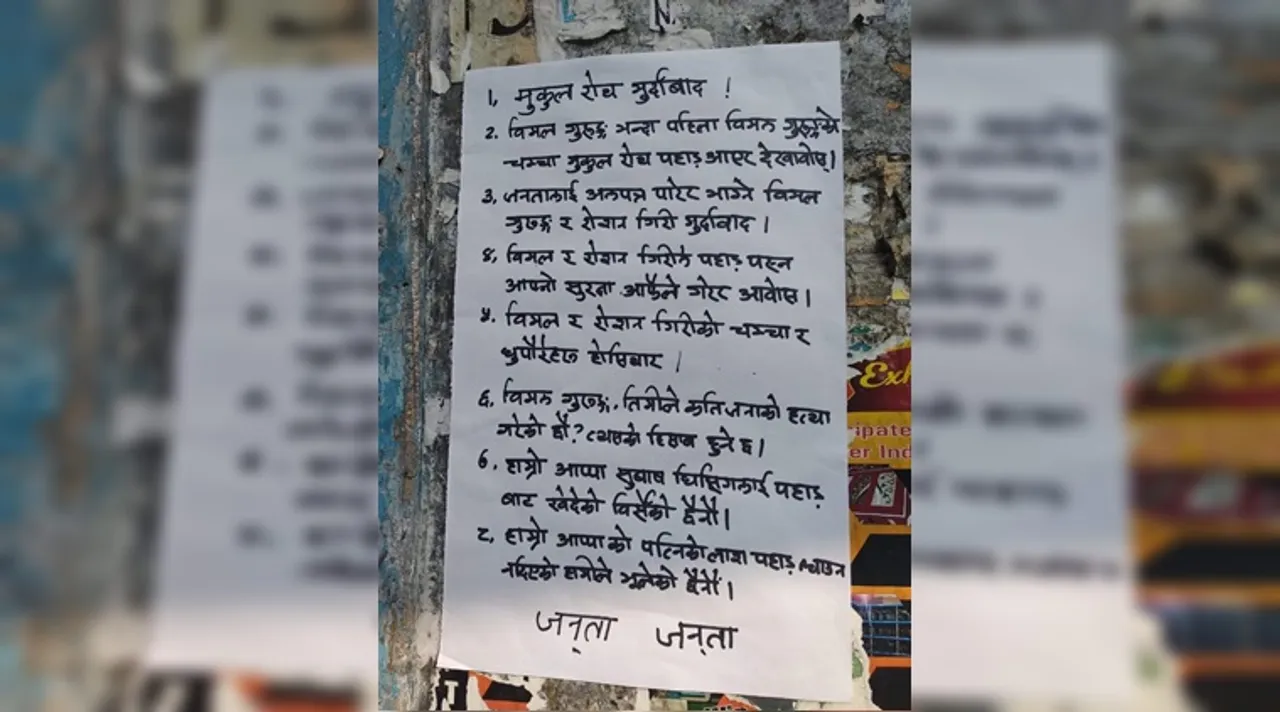 N.
१, मुकुल रोय मुर्दाबाद !
२. विमल गुरूङ्ग भन्दा पहिला विमल गुरूङ्गको
चम्चा मुकुल रोय पहाड़ आएर देखावोस्।
३, जनतालाई अलपत्र पारेर भाग्ने विमल
गुरुङ्ग र रोशन गिरी मुर्दाबाद।
४, विमल र रोशन गिरीले पहाड़ पस्न
आफ्नो सुरक्षा आफैले गरेर आवोस।
५. विमल र रोशन गिरीको चम्चा र
धुपौरेहरू होसियार।
६. विमल गुरुङ्ग, तिमीले कतिजनाको हत्या
गरेको छौ? त्यसको हिसाब हुने छ।
७, हाम्रो आप्पा सुवाष घिसिंगलाई पहाड़
बाट खेदेको विर्सेको छैनौं।
८, हाम्रो आप्पाको पत्निको लाश पहाड़ ल्याउन
नदिएको हामीले भूलेको छैनौं।
जन्‌ता जन्‌ता
Exh
ipate
er Ind